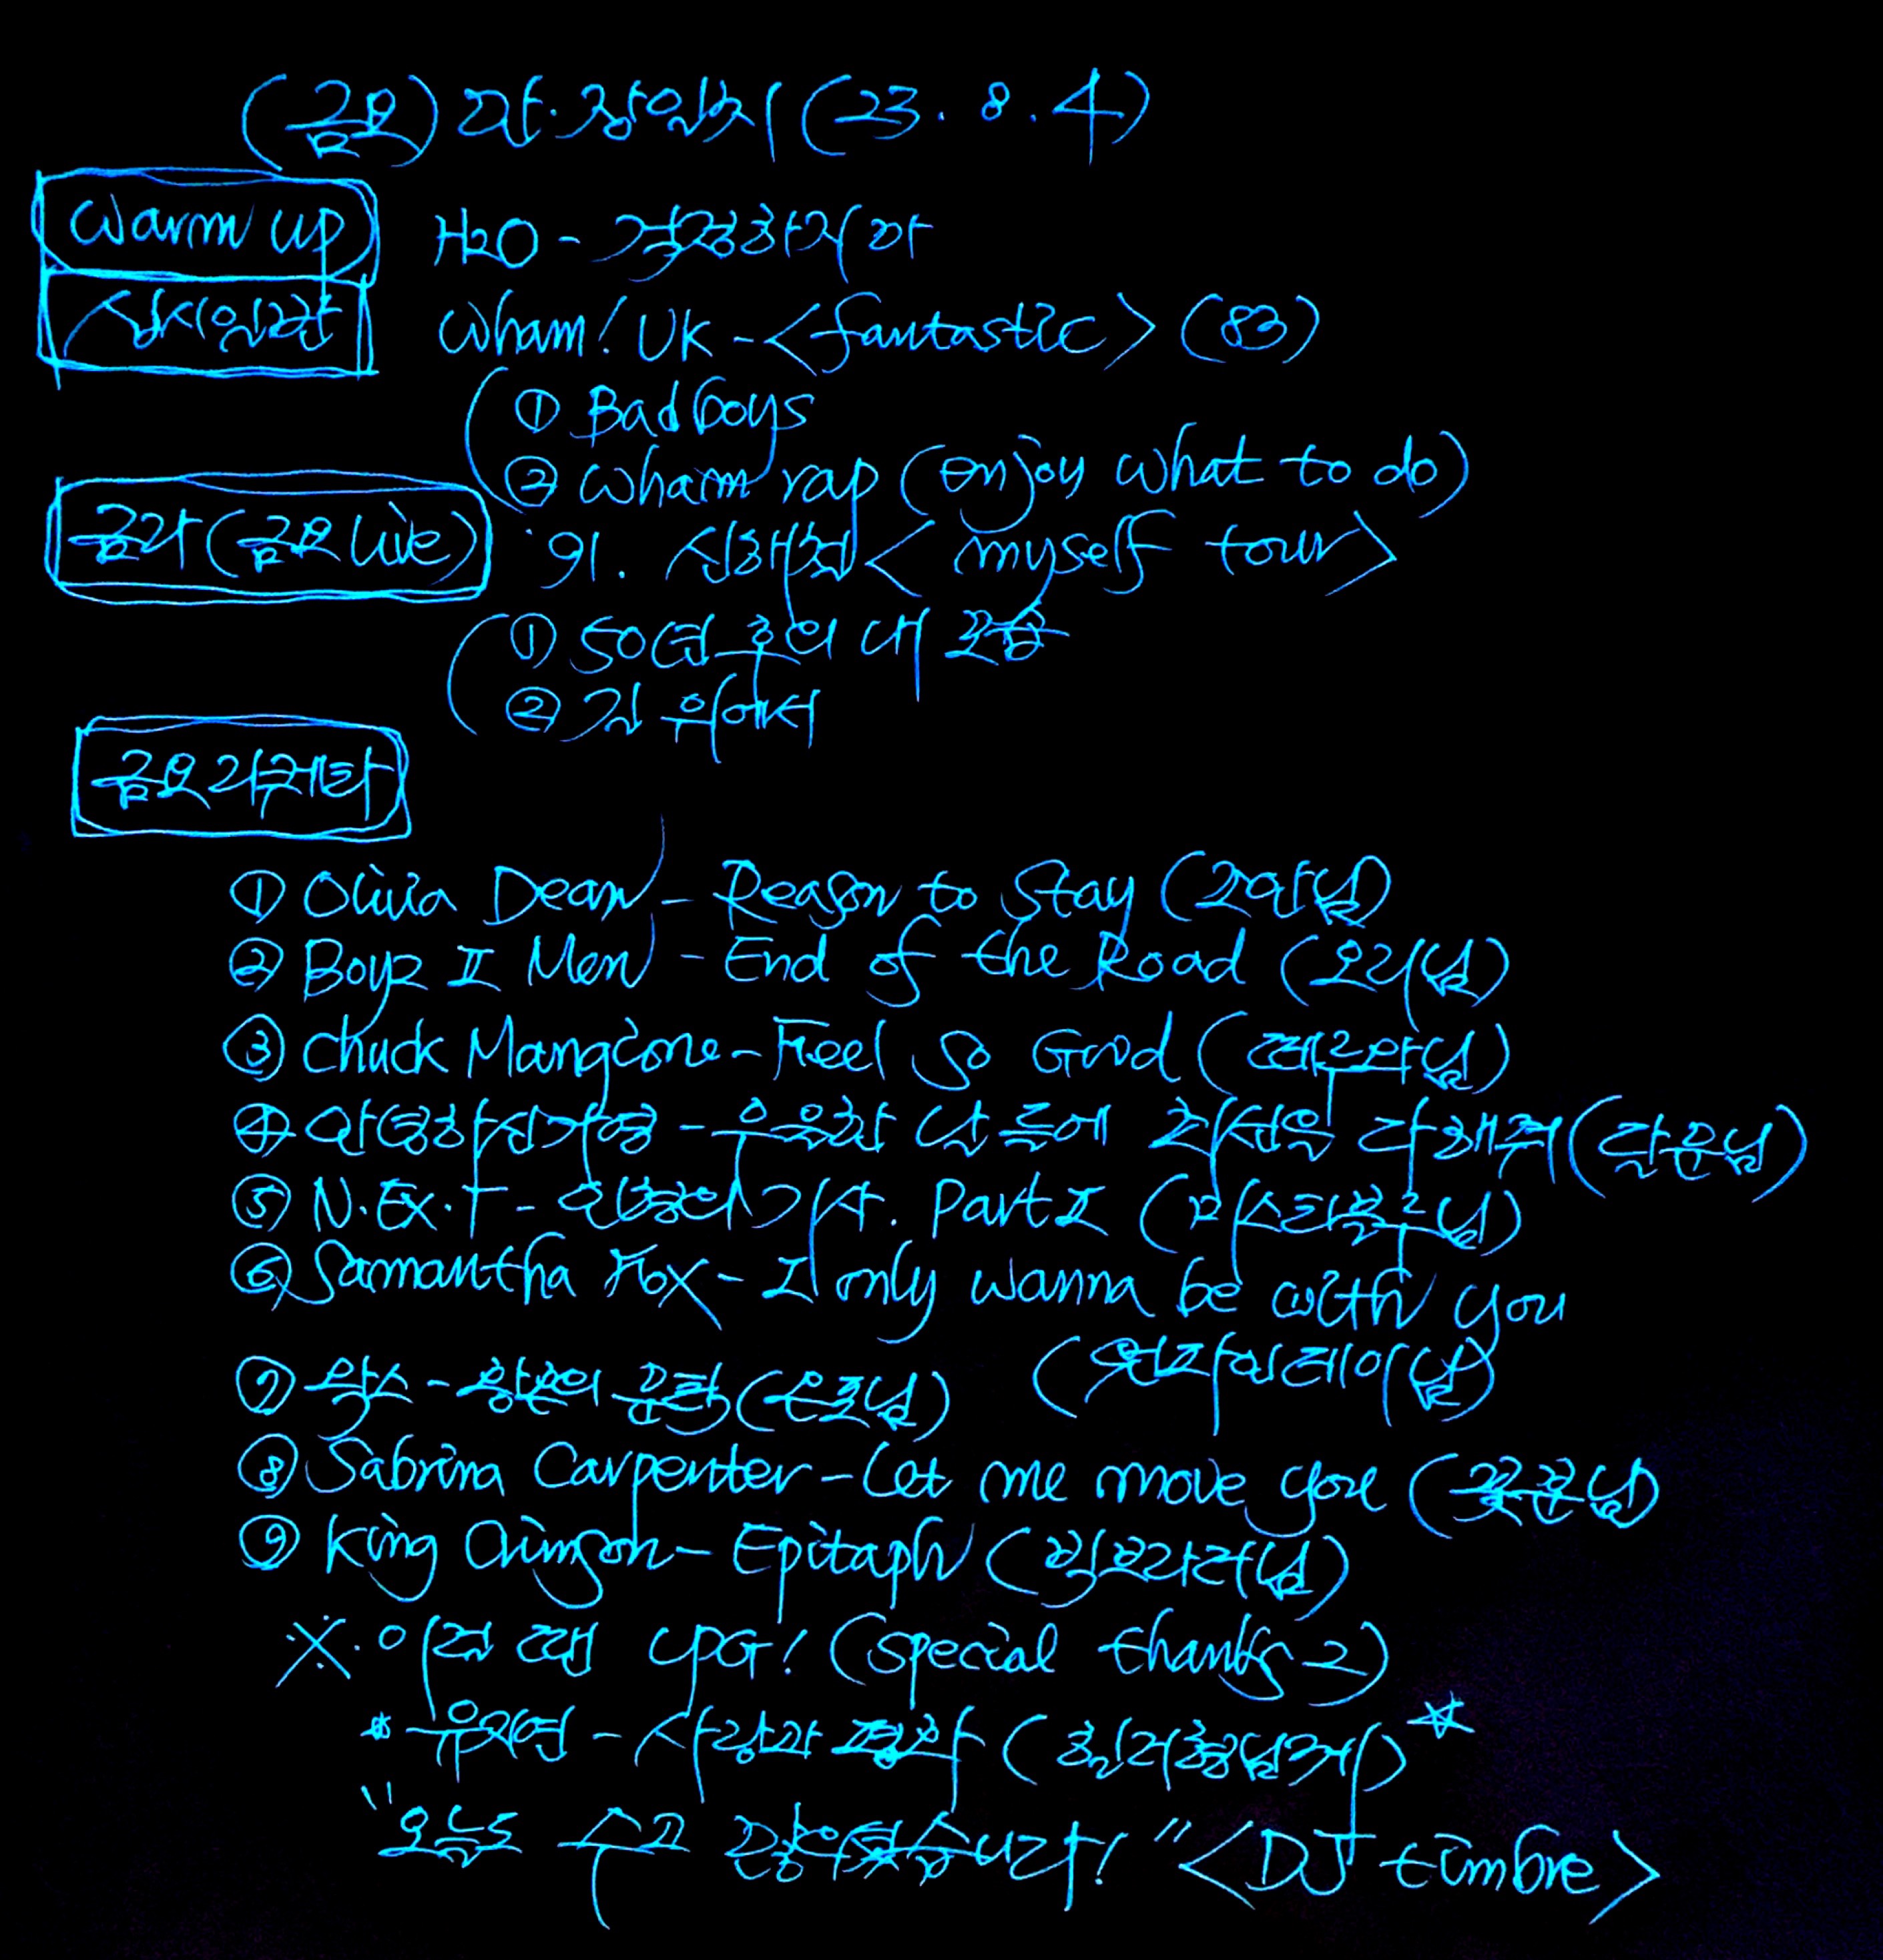 (금요) 라.장일지 (23. 8. 4)
Warm up H2O - 걱정하지 마
Wham! UK - <fantastic> (83)
① Bad boys
② Wham rap (enjoy what to do)
금라(금요 live) '91. 신해철 < myself tour>
① 50년 후의 내 모습
② 길 위에서
금요 라구레타
① Olivia Dean - Reason to Stay (모아님)
② Boyz II Men - End of the Road (오리님)
③ Chuck Mangione - Feel So Good (님)
④ 안녕하신가영 - 우울한 날 들에 최선을 다해줘 (님)
⑤ N.EX.T - 인형의 기사. Part I (님)
⑥ Samantha Fox - I only wanna be with you
(님)
⑦ 왁스 - 황혼의 문턱 (님)
⑧ Sabrina Carpenter - Let me move you (님
⑨ King Crimson - Epitaph (님)
※. 이건 CPG! (Special thanks 2)
* 유재영 - 사랑과 평화 ( ) ☆
"오늘도 수고 많으셨습니다!" <DJ timbre>